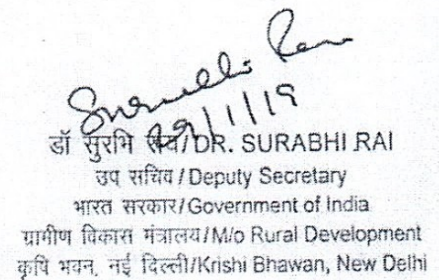 Surabhi Rai
29/1/19
डॉ सुरभि राय/DR. SURABHI RAI
उप सचिव/Deputy Secretary
भारत सरकार/Government of India
ग्रामीण विकास मंत्रालय/M/o Rural Development
कृषि भवन, नई दिल्ली/Krishi Bhawan, New Delhi